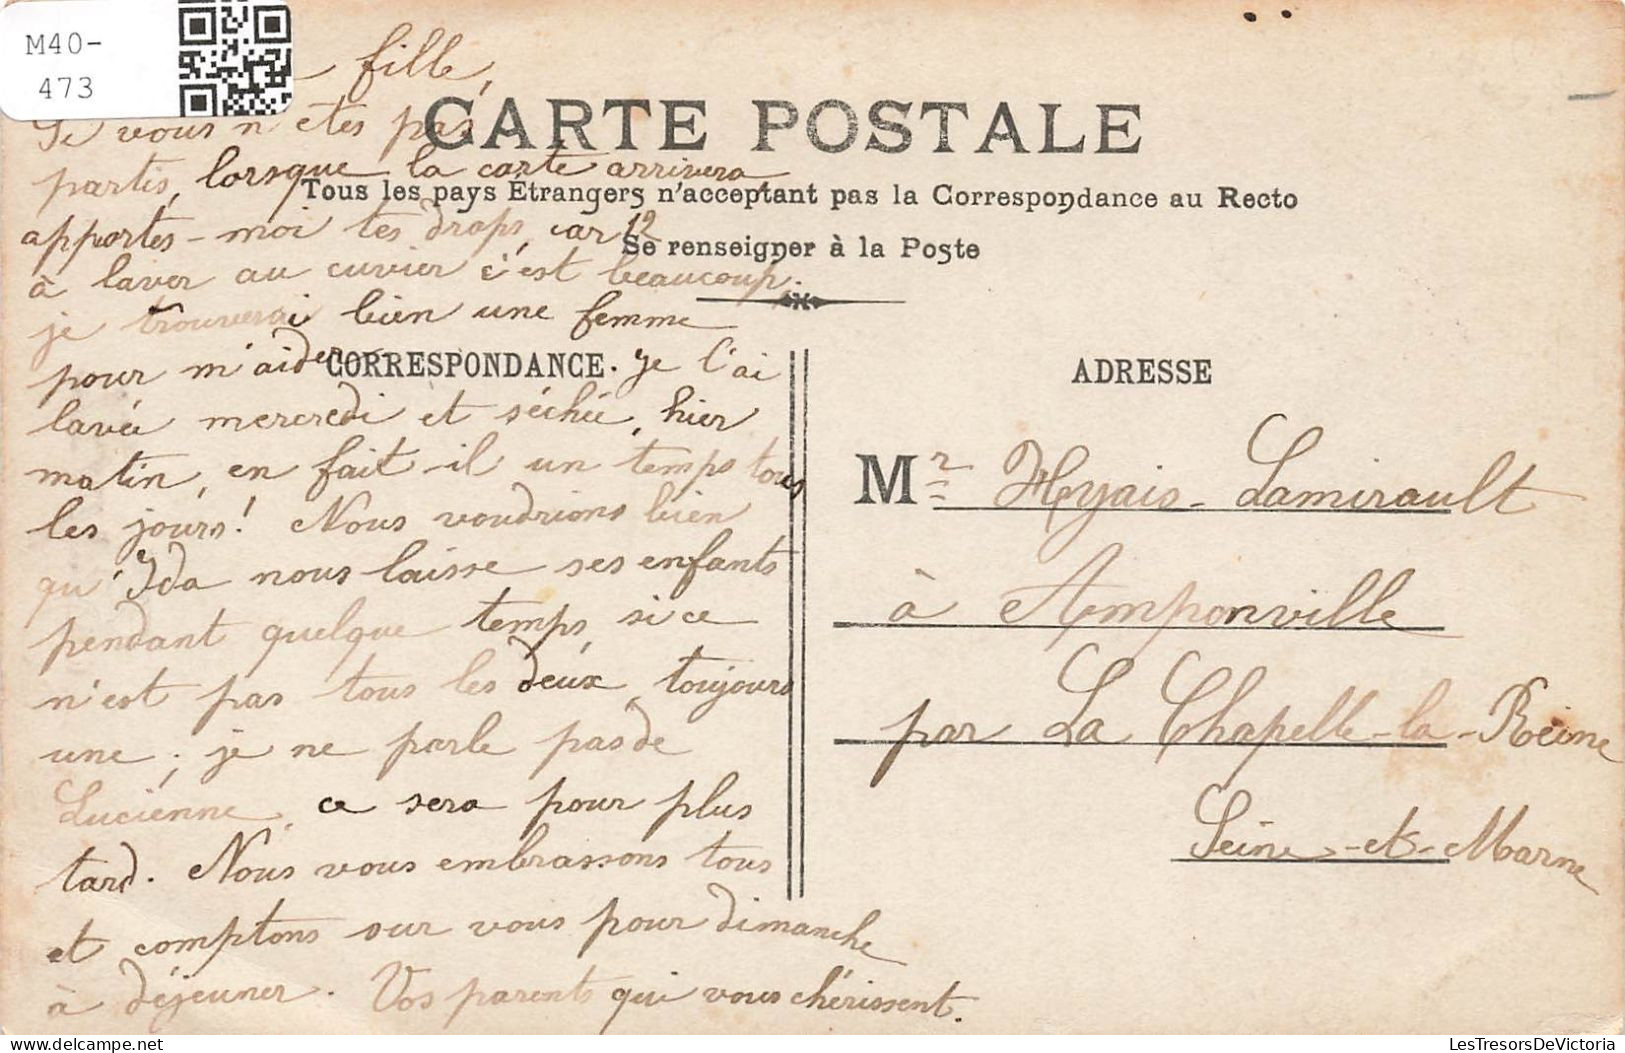 M40-
473
fille,
Si vous n'êtes pas
partis, lorsque la carte arrivera
apportes-moi tes draps, car 12
à laver au cuvier c'est beaucoup.
je trouverai bien une femme
pour m'aider. Je l'ai
lavée mercredi et séchée, hier
matin, en fait-il un temps tous
les jours! Nous voudrions bien
qu'Ida nous laisse ses enfants
pendant quelque temps, si ce
n'est pas tous les deux, toujours
une; je ne parle pas de
Lucienne, ce sera pour plus
tard. Nous vous embrassons tous
et comptons sur vous pour dimanche
à déjeuner. Vos parents qui vous chérissent.
CARTE POSTALE
Tous les pays Étrangers n'acceptant pas la Correspondance au Recto
Se renseigner à la Poste
CORRESPONDANCE.
ADRESSE
Mr Hyais-Lamirault
à Amponville
par La Chapelle-la-Reine
Seine-et-Marne
LesTresorsDeVictoria